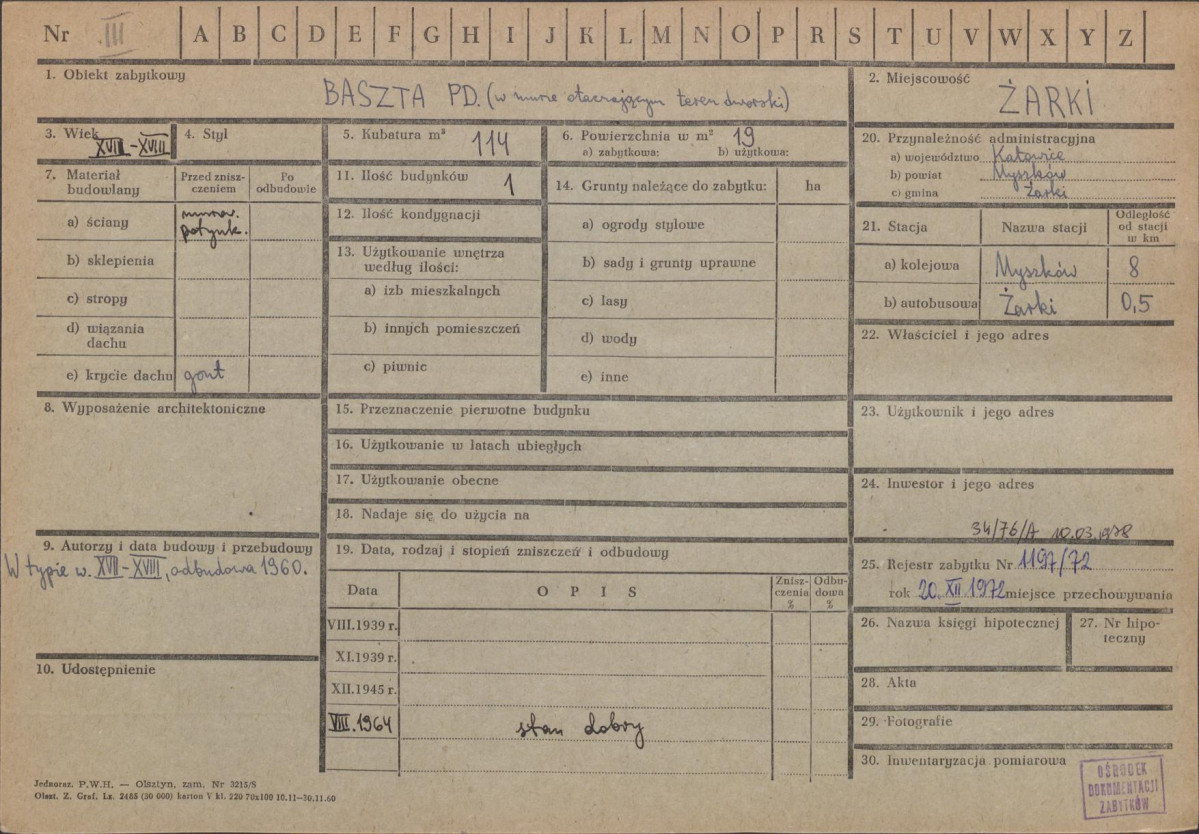 Nr III A B C D E F G H I J K L M N O P R S T U V W X Y Z
1. Obiekt zabytkowy
BASZTA PD. (w murze otaczającym teren dworski)
2. Miejscowość
ŻARKI
3. Wiek
XVII-XVIII
4. Styl
5. Kubatura m³
114
6. Powierzchnia w m²
19
a) zabytkowa: b) użytkowa:
20. Przynależność administracyjna
a) województwo Katowice
b) powiat Myszków
c) gmina Żarki
7. Materiał budowlany
Przed zniszczeniem
Po odbudowie
a) ściany
murow.
potynk.
b) sklepienia
c) stropy
d) wiązania dachu
e) krycie dachu gont
11. Ilość budynków
1
12. Ilość kondygnacji
13. Użytkowanie wnętrza
według ilości:
a) izb mieszkalnych
b) innych pomieszczeń
c) piwnic
14. Grunty należące do zabytku: ha
a) ogrody stylowe
b) sady i grunty uprawne
c) lasy
d) wody
e) inne
21. Stacja
Nazwa stacji
Odległość
od stacji
w km
a) kolejowa Myszków 8
b) autobusowa Żarki 0,5
22. Właściciel i jego adres
8. Wyposażenie architektoniczne
15. Przeznaczenie pierwotne budynku
16. Użytkowanie w latach ubiegłych
17. Użytkowanie obecne
18. Nadaje się do użycia na
23. Użytkownik i jego adres
24. Inwestor i jego adres
34/76/A 10.03.1978
9. Autorzy i data budowy i przebudowy
W typie w. XVII-XVIII, odbudowa 1960.
19. Data, rodzaj i stopień zniszczeń i odbudowy
Data
OPIS
Znisz-
czenia
%
Odbu-
dowa
%
VIII.1939 r.
XI.1939 r.
XII.1945 r.
VIII.1964 stan dobry
25. Rejestr zabytku Nr 1197/72
rok 20.XII.1972 miejsce przechowywania
26. Nazwa księgi hipotecznej
27. Nr hipo-
teczny
10. Udostępnienie
28. Akta
29. Fotografie
30. Inwentaryzacja pomiarowa
OŚRODEK
DOKUMENTACJI
ZABYTKÓW
Jednoraz. P.W.H. — Olsztyn, zam. Nr 3215/S
Olszt. Z. Graf. Lz. 2485 (30 000) karton V kl. 220 70x100 10.11—30.11.60